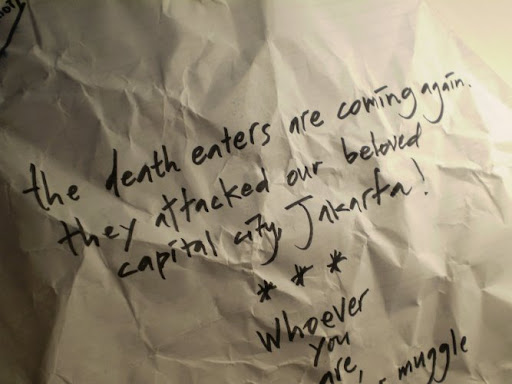 the death eaters are coming again.
they attacked our beloved
capital city, Jakarta!
* * *
Whoever
you
are,
muggle